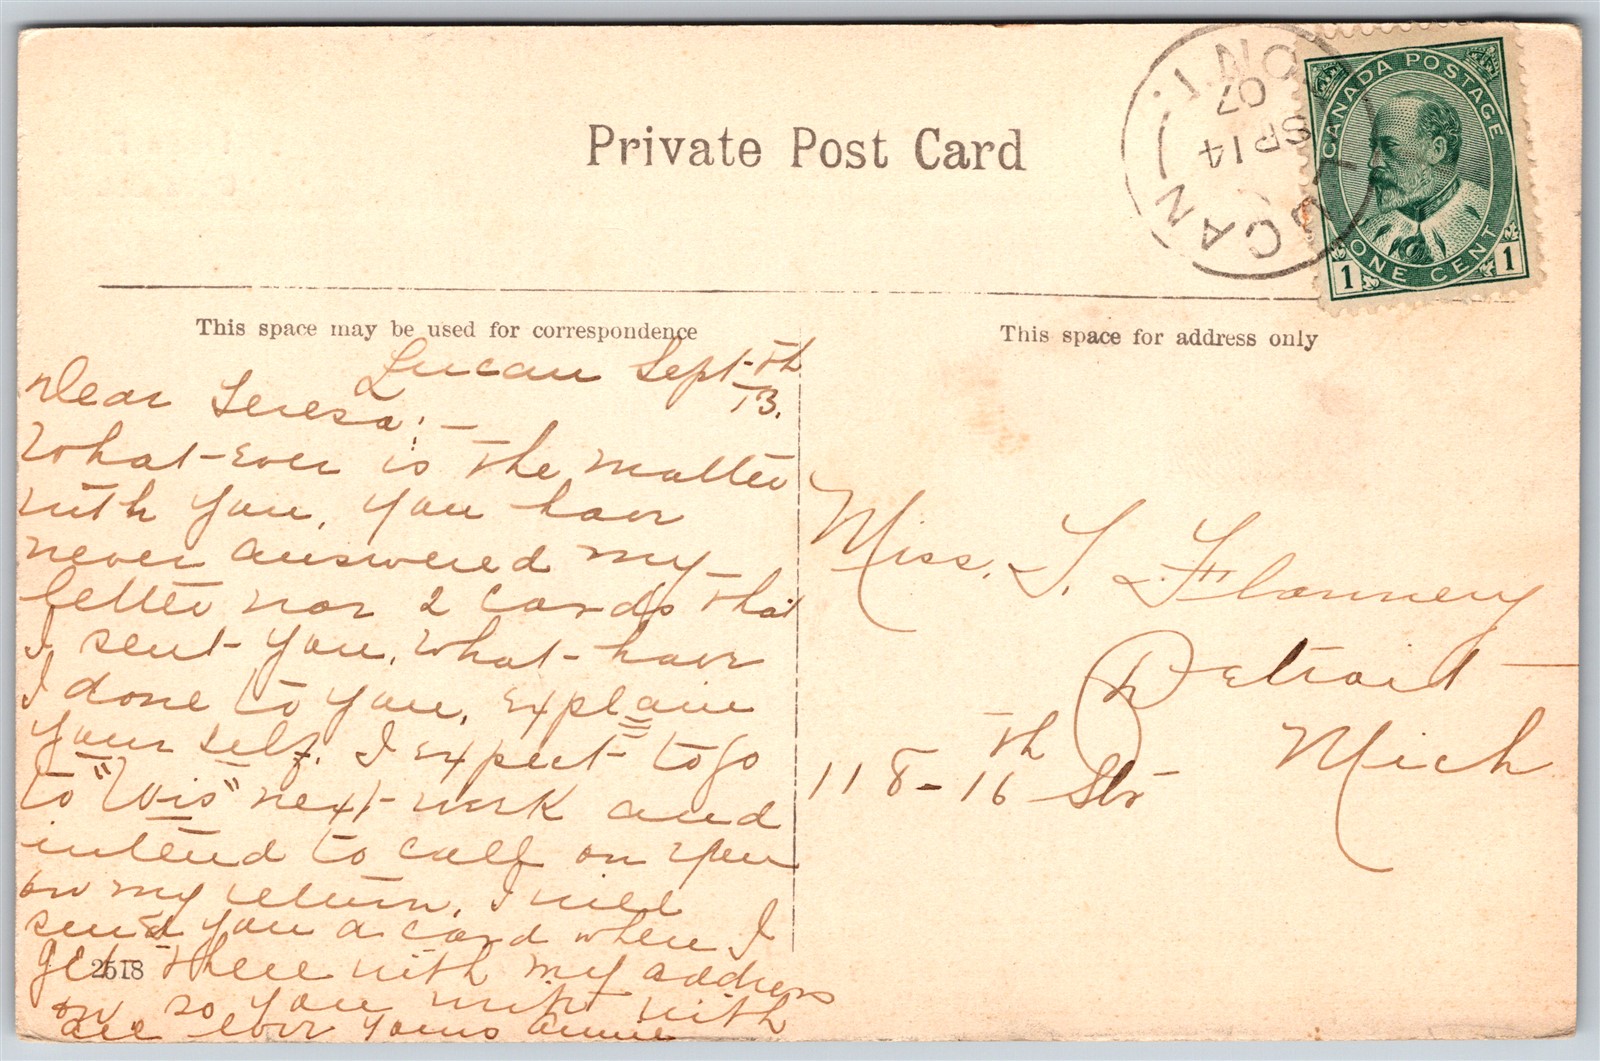 Private Post Card
LUCAN
SP 14
07
ONT.
CANADA POSTAGE
ONE CENT
1 1
This space may be used for correspondence
This space for address only
Lucan Sept. 13th
Dear Teresa:—
What-ever is the matter
with you, you have
never answered my
letter nor 2 cards that
I sent you. What have
I done to you, explain
your self. I expect to go
to "Wis" next week and
intend to call on you
on my return. I will
send you a card when I
get there with my address
on so you write with
love yours Annie
2518
Miss. T. Flannery
Detroit
Mich
118-16th Str